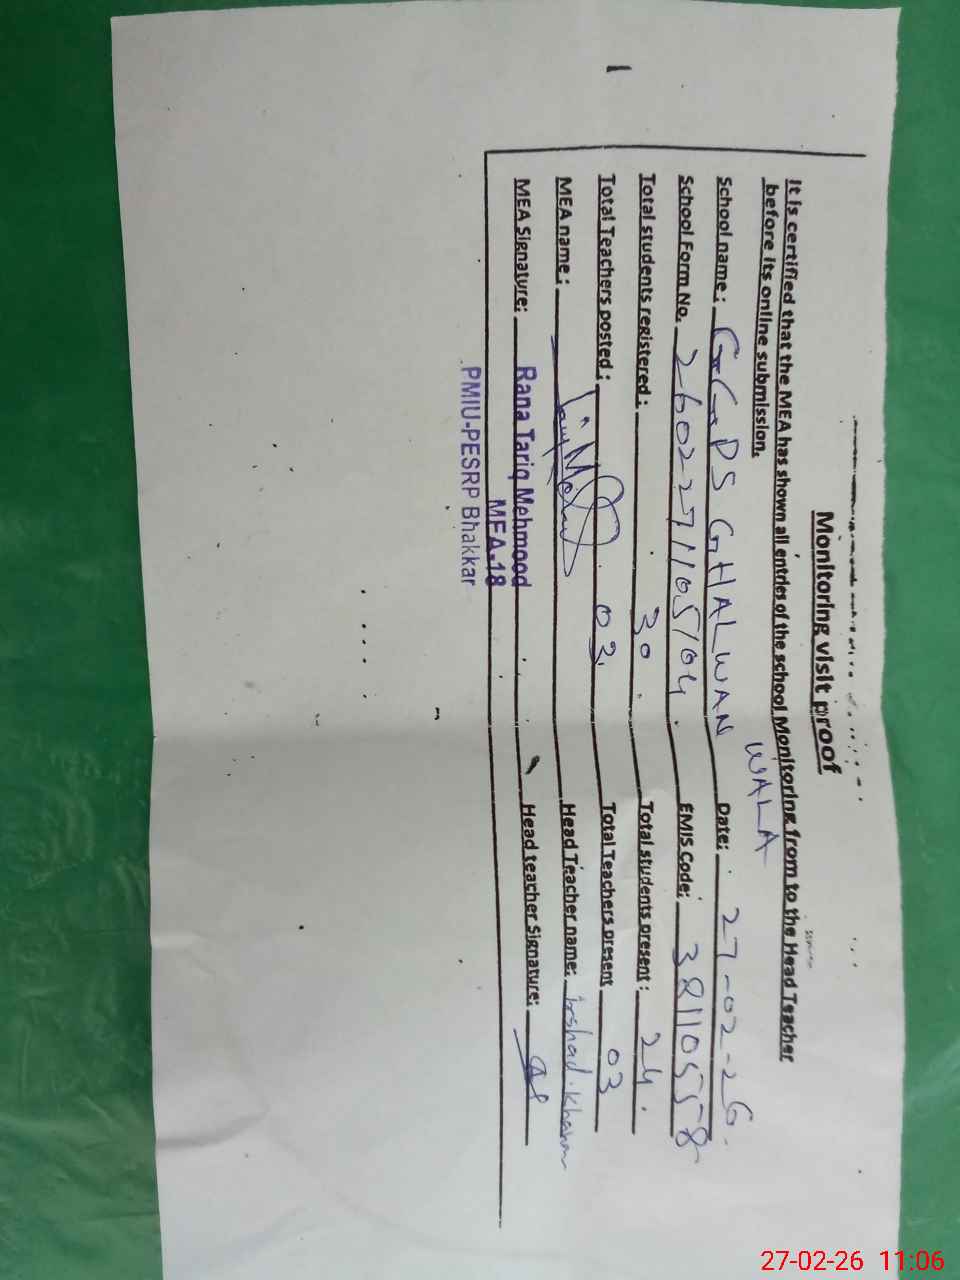 Monitoring visit proof
It is certified that the MEA has shown all entries of the school Monitoring from to the Head Teacher
before its online submission.
School name: GGPS GHALWAN WALA Date: 27-02-26
School Form No. 2602271105104 EMIS Code: 38110558
Total students registered: 30 Total students present: 24
Total Teachers posted: 03 Total Teachers present 03
MEA name: Head Teacher name: Irshad Khanm
MEA Signature: Rana Tariq Mehmood Head teacher Signature:
MEA-18
PMIU-PESRP Bhakkar
27-02-26 11:06